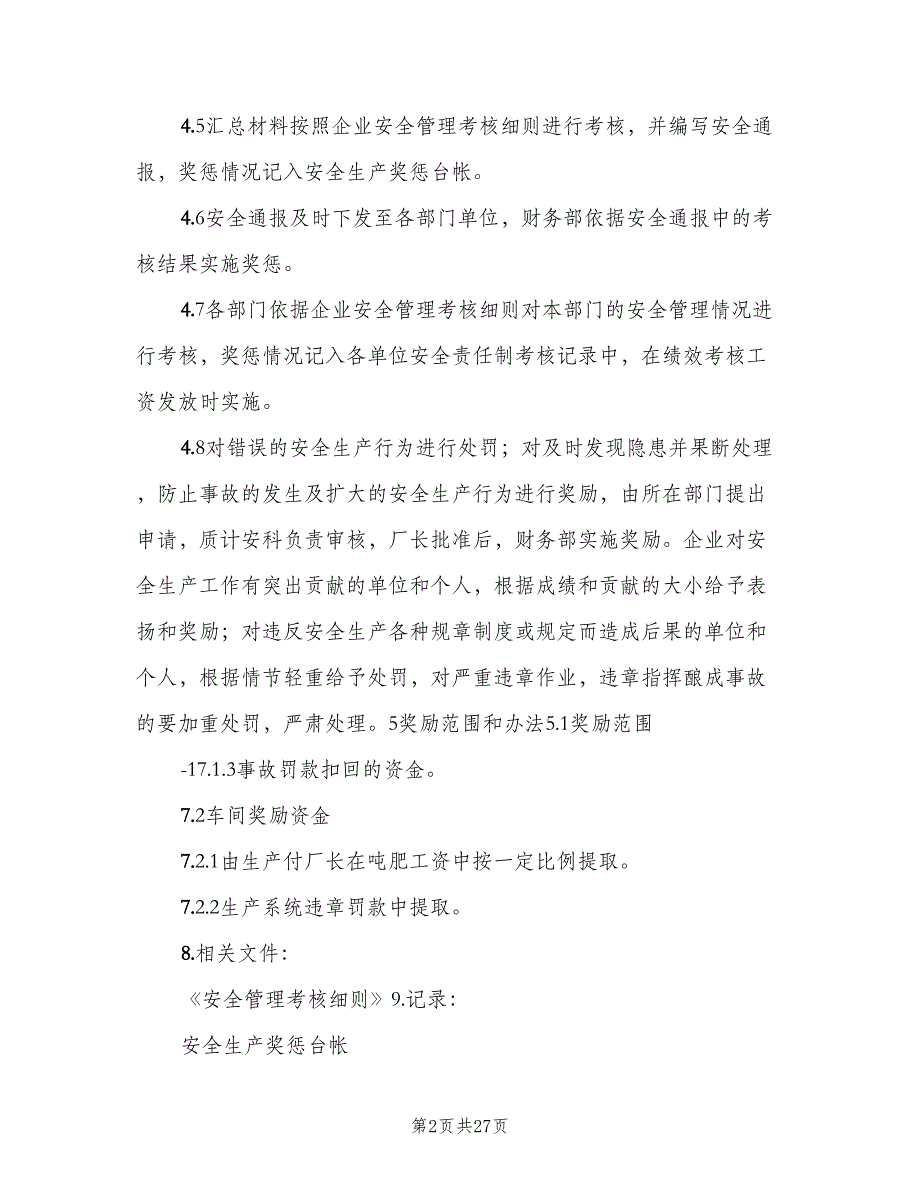 4.5汇总材料按照企业安全管理考核细则进行考核，并编写安全通
报，奖惩情况记入安全生产奖惩台帐。
4.6安全通报及时下发至各部门单位，财务部依据安全通报中的考
核结果实施奖惩。
4.7各部门依据企业安全管理考核细则对本部门的安全管理情况进
行考核，奖惩情况记入各单位安全责任制考核记录中，在绩效考核工
资发放时实施。
4.8对错误的安全生产行为进行处罚；对及时发现隐患并果断处理
，防止事故的发生及扩大的安全生产行为进行奖励，由所在部门提出
申请，质计安科负责审核，厂长批准后，财务部实施奖励。企业对安
全生产工作有突出贡献的单位和个人，根据成绩和贡献的大小给予表
扬和奖励；对违反安全生产各种规章制度或规定而造成后果的单位和
个人，根据情节轻重给予处罚，对严重违章作业，违章指挥酿成事故
的要加重处罚，严肃处理。5奖励范围和办法5.1奖励范围
-17.1.3事故罚款扣回的资金。
7.2车间奖励资金
7.2.1由生产付厂长在吨肥工资中按一定比例提取。
7.2.2生产系统违章罚款中提取。
8.相关文件：
《安全管理考核细则》9.记录：
安全生产奖惩台帐
第2页共27页